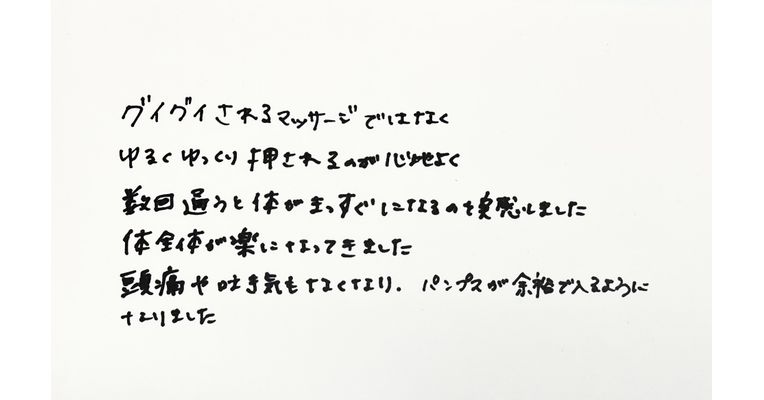 グイグイされるマッサージではなく
ゆるくゆっくり押されるのが心地よく
数回通うと体がまっすぐになるのを実感しました
体全体が楽になってきました
頭痛や吐き気もなくなり、パンプスが余裕で入るように
なりました